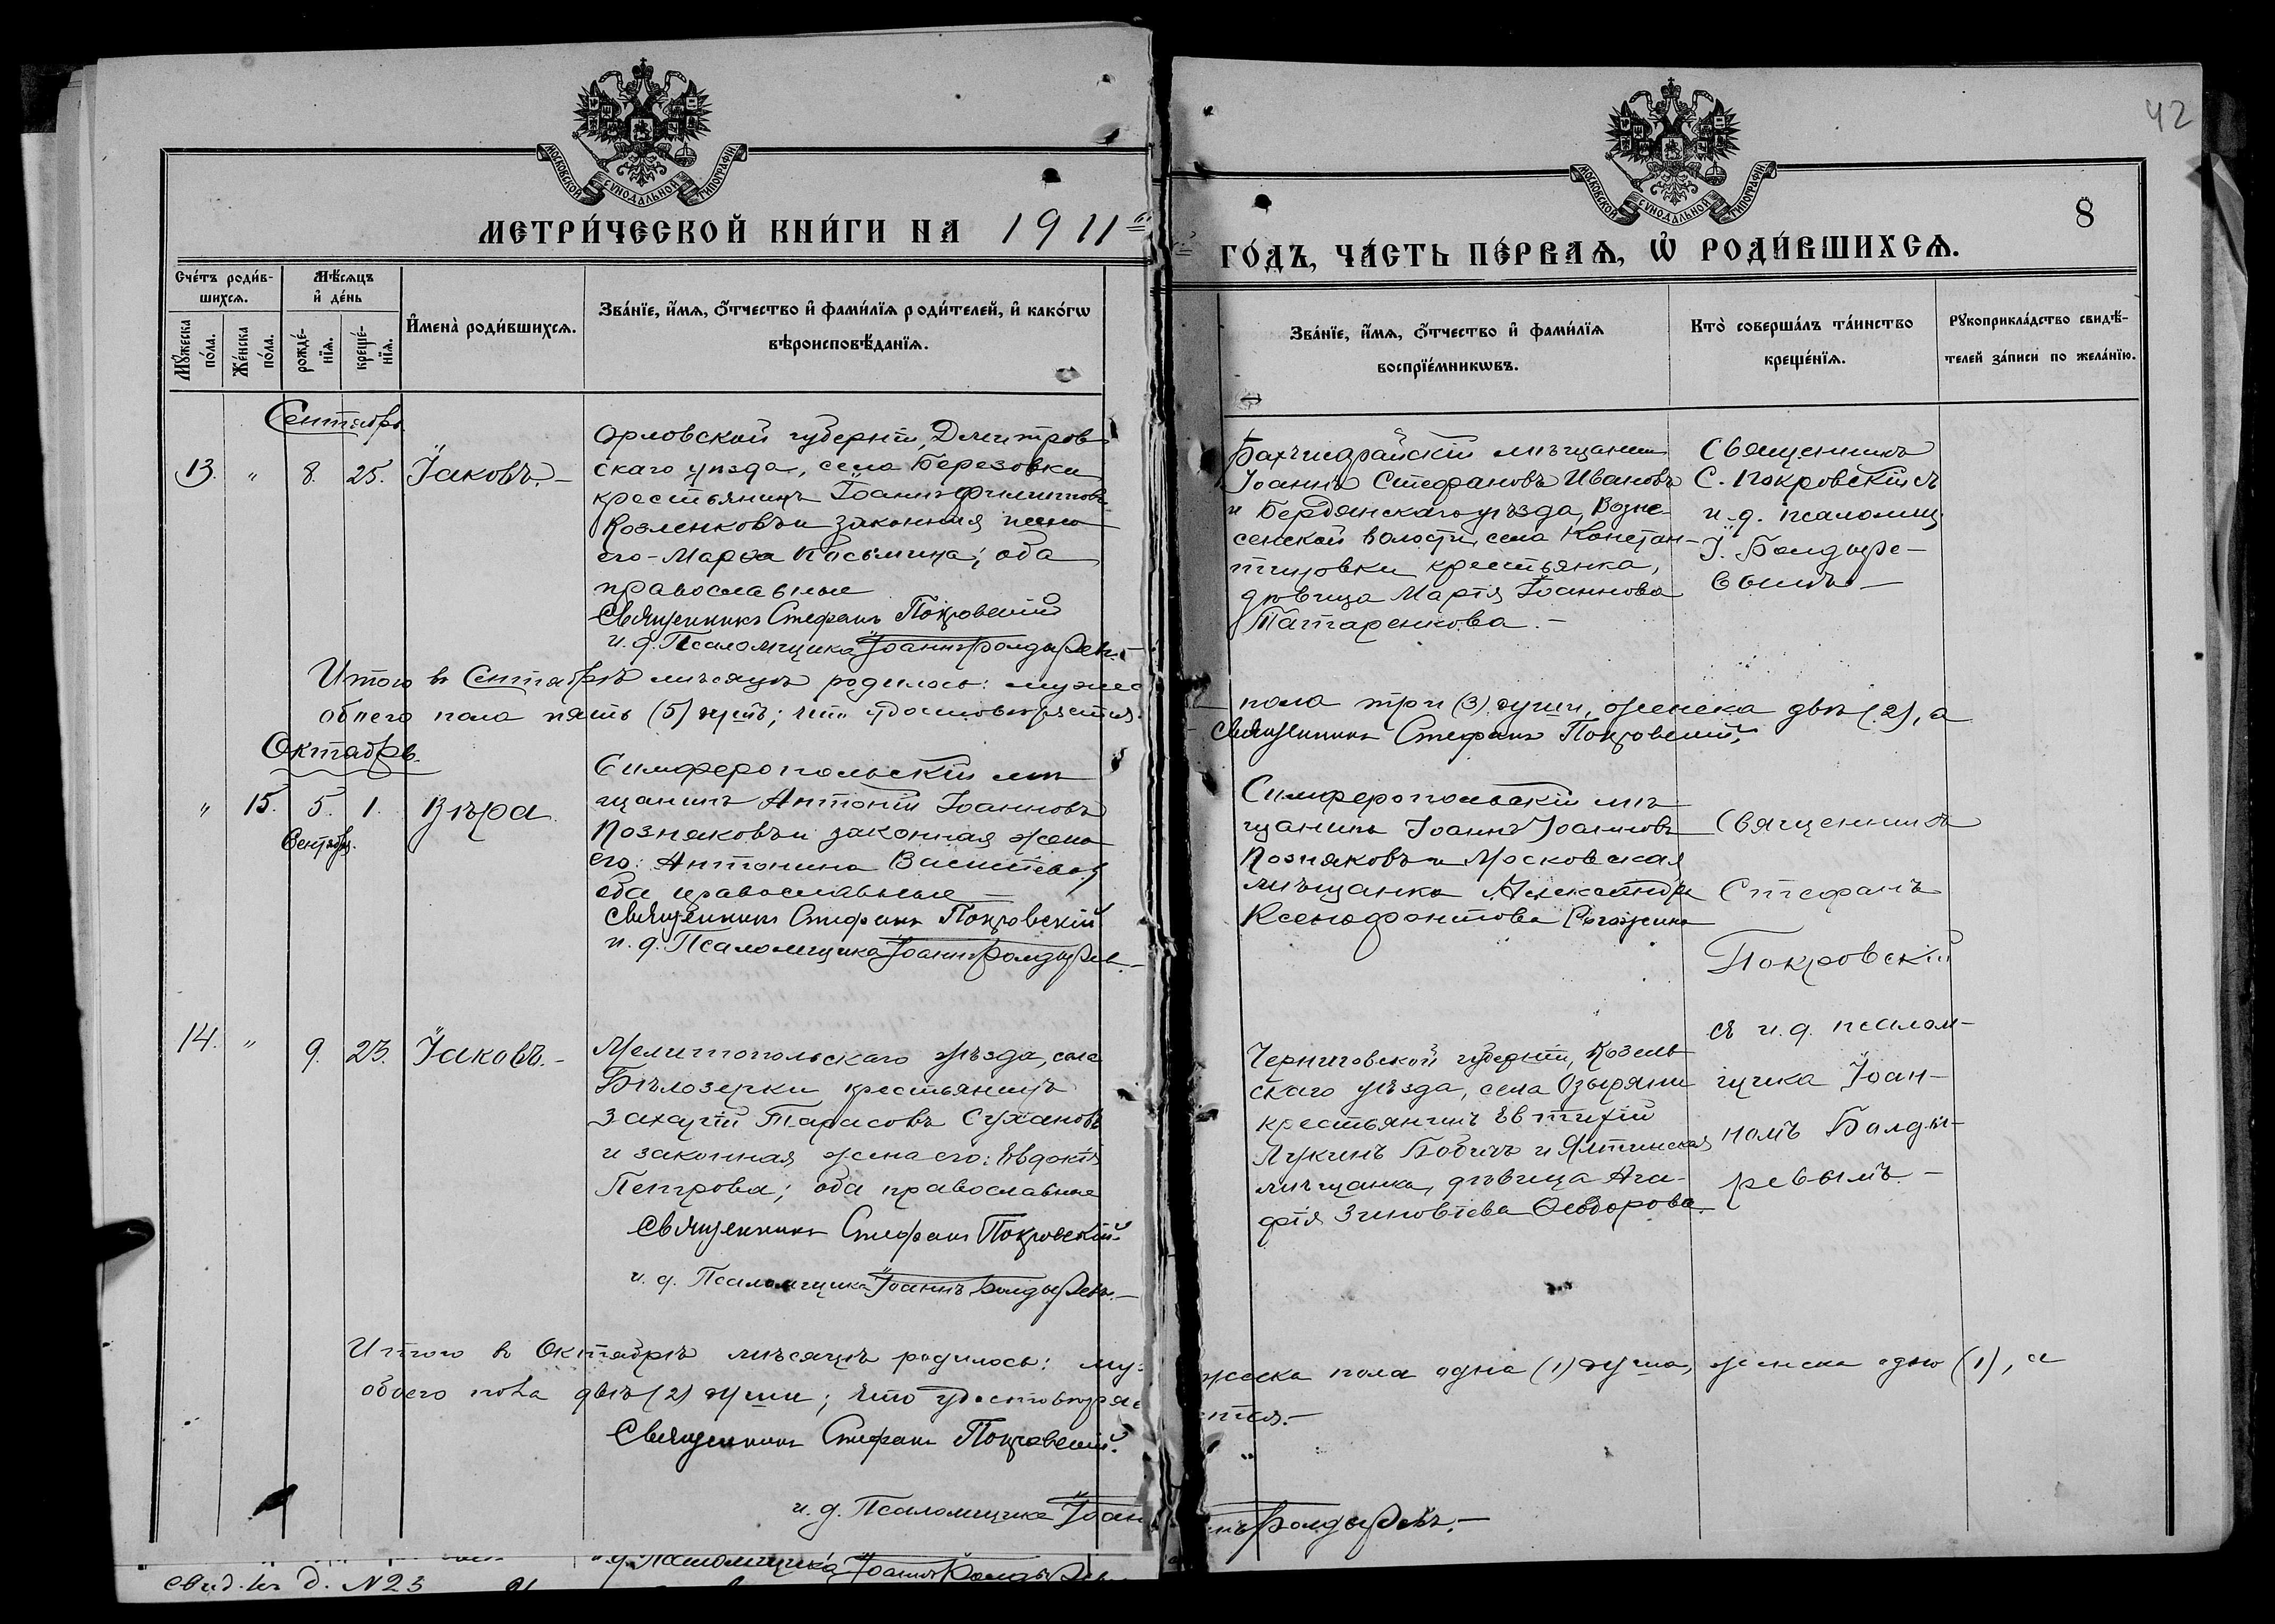 42
МОСКОВСКОЙ СѴНОДАЛЬНОЙ ТИПОГРАФІИ.
МОСКОВСКОЙ СѴНОДАЛЬНОЙ ТИПОГРАФІИ.
МЕТРИ́ЧЕСКОЙ КНИ́ГИ НА 1911
8
ГО́ДЪ, ЧА́СТЬ ПЕ́РВАѦ, Ѡ҆ РОДИ́ВШИХСѦ.
Сче́тъ роди́в-
шихсѧ.
Мꙋ́жеска по́ла.
Же́нска по́ла.
Мѣ́сѧцъ
и҆ де́нь
рожде́-
нїѧ.
креще́-
нїѧ.
И҆мена̀ роди́вшихсѧ.
Зва́нїе, и҆́мѧ, ѻ҆́тчество и҆ фами́лїѧ роди́телей, и҆ како́гѡ
вѣроисповѣ́данїѧ.
Зва́нїе, и҆́мѧ, ѻ҆́тчество и҆ фами́лїѧ
воспрїе́мникѡвъ.
Кто̀ соверша́лъ та́инство
креще́нїѧ.
Рꙋкоприкла́дство свидѣ́-
телей за́писи по жела́нїю.
Сентябрь
13. " 8. 25. Іаковъ.-
Орловской губерніи, Дмитров
скаго уѣзда, села Березовки
крестьянинъ Іоаннъ Филиппов
Козленковъ и законная жена
его - Марѳа Косьмина; оба
православные
Священникъ Стефанъ Покровскій
и. д. Псаломщика Іоаннъ Болдыревъ.-
Бахчисарайскій мѣщанин
Іоаннъ Стефановъ Ивановъ
и Бердянскаго уѣзда, Возне-
сенской волости, села Констан-
тиновки крестьянка,
дѣвица Марія Іоаннова
Татаренкова.-
Священникъ
С. Покровскій съ
и. д. псаломщ.
І. Болдыре-
вымъ-
Итого въ Сентябрѣ мѣсяцѣ родилось: мужес
обоего пола пять (5) душъ; что удостовѣряется.
пола три (3) души, женска двѣ (2), а
Священникъ Стефанъ Покровскій,
Октябрь.
" 15. 5. 1. Вѣра
Сентябр.
Симферопольскій мѣ
щанинъ Антоній Іоанновъ
Позняковъ и законная жена
его: Антонина
оба православные-
Священникъ Стефанъ Покровскій
и. д. Псаломщика Іоаннъ Болдырев.-
Симферопольскій мѣ
щанинъ Іоаннъ Іоанновъ
Позняковъ и Московская
мѣщанка Александра
Ксенофонтова
Священникъ
Стефанъ
Покровскій
съ и. д. псалом-
щика Іоан-
номъ Болды-
ревымъ.-
14. " 9. 23. Іаковъ.-
Мелитопольскаго уѣзда, села
Бѣлозерки крестьянинъ
Захарій Тарасовъ Сухановъ
и законная жена его: Евдокія
Петрова; оба православные
Священникъ Стефанъ Покровскій.
и. д. Псаломщика Іоаннъ Болдыревъ.-
Черниговской губерніи, Козель
скаго уѣзда, села Озыряни
крестьянинъ Евтихій
Лукинъ Бобичъ и Ялтинская
мѣщанка, дѣвица Ага-
фія Зиновіева Ѳеодорова.
Итого въ Октябрѣ мѣсяцѣ родилось: му-
обоего пола двѣ (2) души; что удостовѣряе
Священникъ Стефанъ Покровскій.
и. д. Псаломщика Іоан
жеска пола одна (1) душа, женска одна (1), а
ется.-
нъ Болдыревъ.-
и. д. Псаломщика Іоаннъ Болдырев
Свид. д. №23